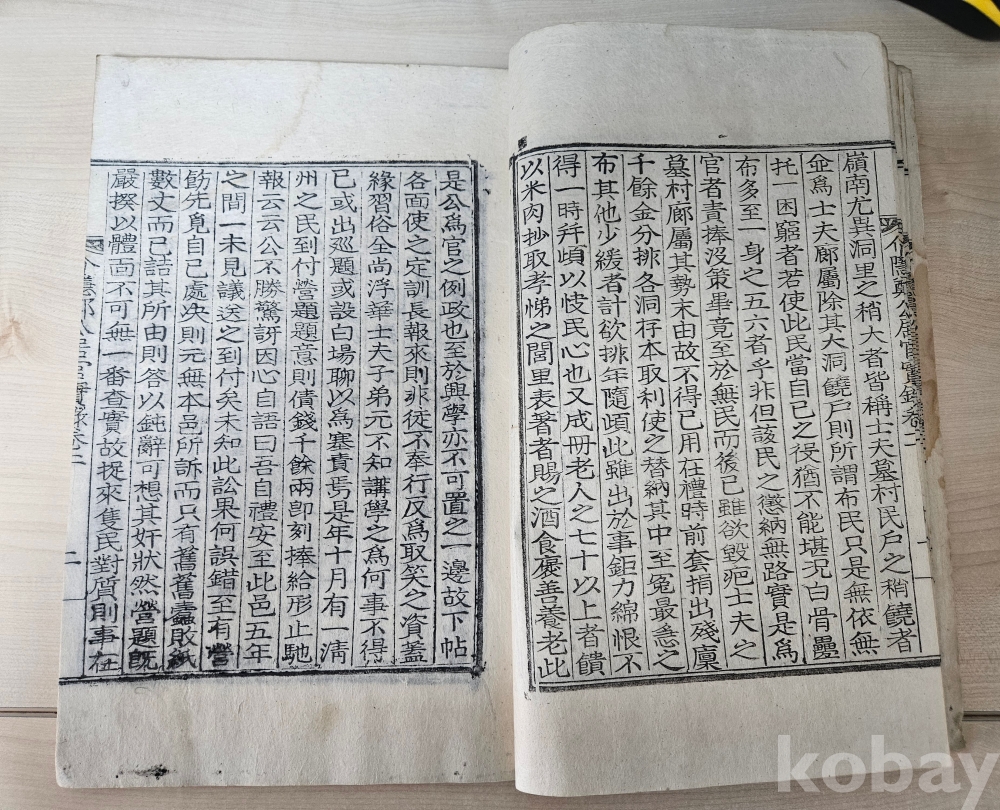 嶺南尤異洞里之稍大者皆稱士夫墓村民戶之稍饒者
並爲士夫廊屬除其大洞饒戶則所謂布民只是無依無
托一困窮者若使此民當自己之役猶不能堪况白骨疊
布多至一身之五六者乎非但該民之懲納無路實是爲
官者責捧沒策畢竟至於無民而後已雖欲毀祀士夫之
墓村廊屬其勢末由故不得已用在禮時前套捐出殘廩
千餘金分排各洞存本取利使之替納其中至冤最急之
布其他少緩者計欲排年隨頉此雖出於事鉅力綿恨不
得一時幷頉以恔民心也又成冊老人之七十以上者饋
以米肉抄取孝悌之閭里表著者賜之酒食褒善養老此
是公爲官之例政也至於興學亦不可置之一邊故下帖
各面使之定訓長報來則非徒不奉行反爲取笑之資蓋
緣習俗全尚浮華士夫子弟元不知講學之爲何事不得
已或出廵題或設白場聊以爲塞責焉是年十月有一淸
州之民到付營題題意則債錢千餘兩卽刻捧給形止馳
報云云公不勝驚訝因心自語曰吾自禮安至此邑五年
之間一未見議送之到付矣未知此訟果何誤錯至有營
飭先覓自己處决則元無本邑所訴而只有舊舊蠹敗紙
數文而已詰其所由則答以鈍辭可想其奸狀然營題旣
嚴揆以體面不可無一番查實故捉來隻民對質則事在
居官實錄卷二
二
kobay